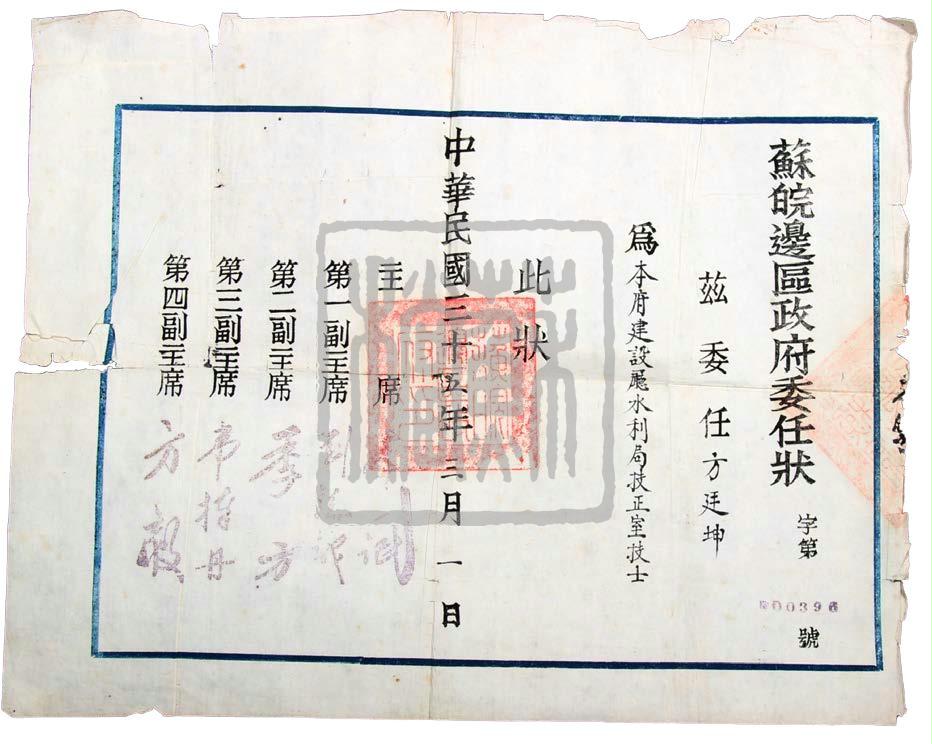 蘇皖邊區政府委任狀
字第
000396
號
茲委任方廷坤
為本府建設廳水利局技正室技士
此狀
中華民國三十五年三月一日
主席
第一副主席
第二副主席 季方
第三副主席 韋捧丹
第四副主席 方毅